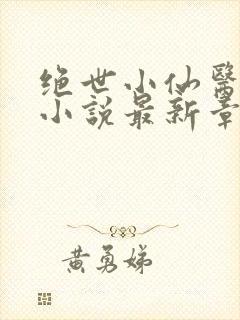 绝世小仙醫
小說最新章
黄勇娣